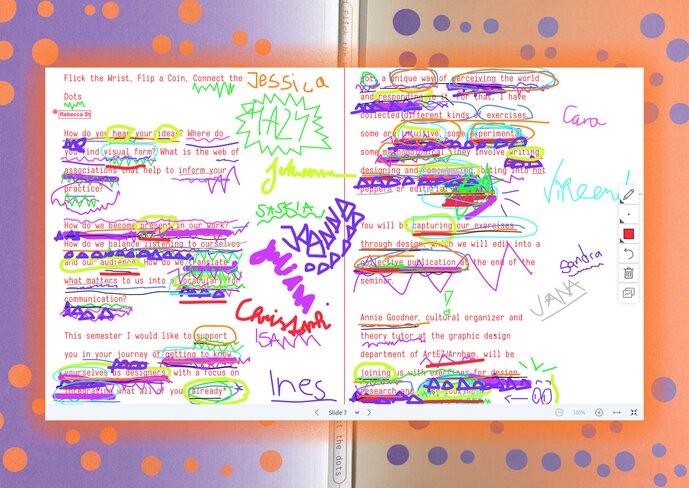 Flick the Wrist, Flip a Coin, Connect the
Dots
Rebecca St
How do you hear your ideas? Where do
you find visual form? What is the web of
associations that help to inform your
practice?
How do we become present in our work?
How do we balance listening to ourselves
and our audience? How do we translate
what matters to us into a vocabulary for
communication?
This semester I would like to support
you in your journey of getting to know
yourselves as designers, with a focus on
integrating what all of you already
Jessica
Johanna
SASKIA
Christoph
Ines
a unique way of perceiving the world
and responding to it. For that, I have
collected different kinds of exercises,
some are intuitive, some experimental,
some They involve writing,
designing and eating into hot
peppers or editorial
You will be capturing our exercises
through design, which we will edit into a
collective publication at the end of the
seminar.
Annie Goodner, cultural organizer and
theory tutor at the graphic design
department of ArtEZ/Arnhem, will be
joining us with exercises for design
research and
Cara
Sandra
JANA
Slide 7
100%
ct the dots